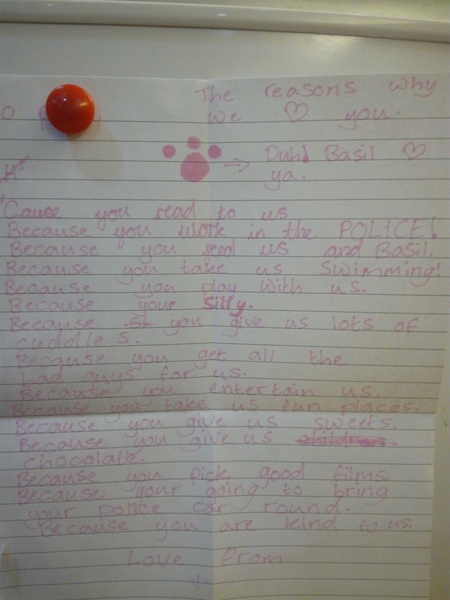 The reasons why
we ♡ you.
Duh! Basil ♡
ya.
'Cause you read to us
Because you work in the POLICE!
Because you feed us and Basil.
Because you take us swimming!
Because you play with us.
Because your silly.
Because you give us lots of
cuddles.
Because you get all the
bad guys for us.
Because you entertain us.
Because you take us fun places.
Because you give us sweets.
Because you give us
chocolate.
Because you pick good films.
Because your going to bring
your police car round.
Because you are kind to us.
Love from